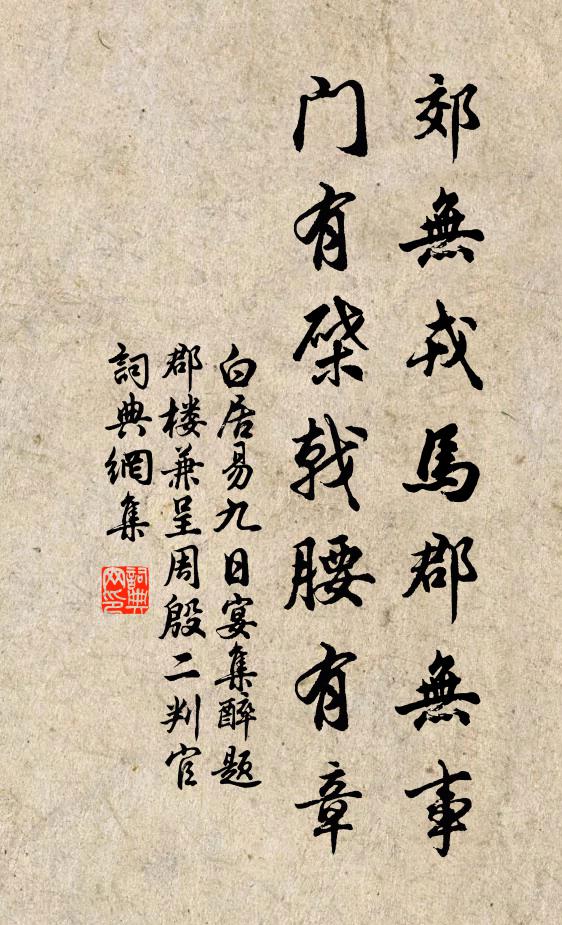 郊無戎馬郡無事
门有棨戟腰有章
白居易九日宴集醉题
郡楼兼呈周殷二判官
詞典網集
詞典
网印